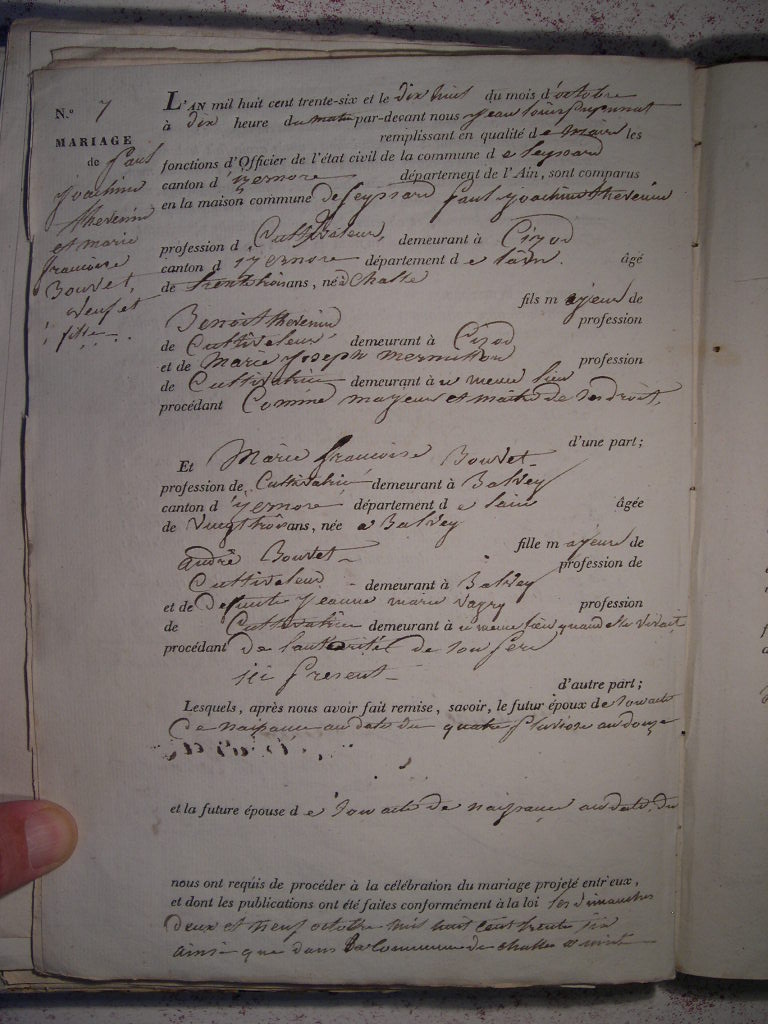 N.º 7
MARIAGE
de Paul
Joachim
thevenin
et marie
francoise
Bouvet,
veuf et
fille
L'AN mil huit cent trente-six et le dix huit du mois d'octobre
à dix heure du matin par-devant nous jean louis
remplissant en qualité de maire les
fonctions d'Officier de l'état civil de la commune de leyssard
canton d'izernore département de l'Ain, sont comparus
en la maison commune de leyssard Paul joachim thevenin
profession d Cultivateur, demeurant à Cizod
canton d izernore département de lain. âgé
de trente trois ans, né à Challe
fils majeur de
Benoit thevenin profession
de Cultivateur demeurant à Cizod
et de Marie joseph profession
de Cultivatrice demeurant à u meme lieu
procédant Comme majeur et maitre de ses droit,
d'une part;
Et Marie francoise Bouvet
profession de Cultivatrice demeurant à Balvey
canton d'izernore département de lain âgée
de vingt trois ans, née a Balvey
fille majeure de
andré Bouvet profession de
Cultivateur demeurant à Balvey
et de defunte jeanne marie profession
de Cultivatrice demeurant à u meme lieu quand elle vivait
procédant de lautorité de son pere
ici present
d'autre part;
Lesquels, après nous avoir fait remise, savoir, le futur époux de son acte
De naissance au date du quatre pluviose an douze
et la future épouse de son acte de naissance au date du
nous ont requis de procéder à la célébration du mariage projeté entr'eux,
et dont les publications ont été faites conformément à la loi les dimanches
deux et neuf octobre mil huit cent trente six
ainsi que dans la Commune de challes